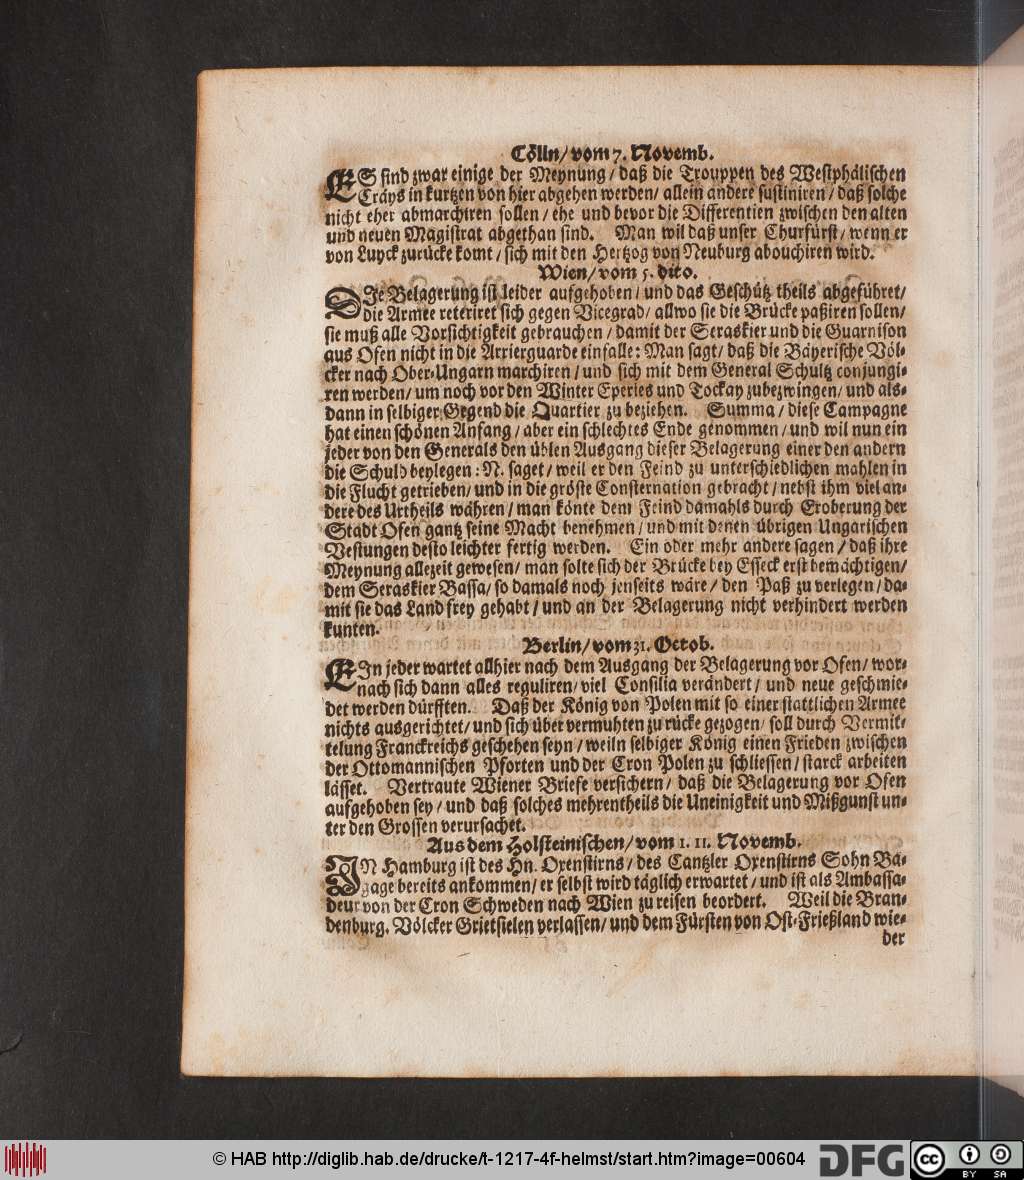 Cölln/ vom 7. Novemb.
ES sind zwar einige der Meynung/ daß die Trouppen des Westphälischen
Cräys in kurtzen von hier abgehen werden/ allein andere sustiniren/ daß solche
nicht eher abmarchiren sollen/ ehe und bevor die Differentien zwischen den alten
und neuen Magistrat abgethan sind. Man wil daß unser Churfürst/ wenn er
von Luyck zurücke komt/ sich mit den Hertzog von Neuburg abouchiren wird.
Wien/ vom 5. dito.
DIe Belagerung ist leider aufgehoben/ und das Geschütz theils abgeführet/
die Armee reteriret sich gegen Vicegrad/ allwo sie die Brücke paßiren sollen/
sie muß alle Vorsichtigkeit gebrauchen/ damit der Seraskier und die Guarnison
aus Ofen nicht in die Arrierguarde einfalle: Man sagt/ daß die Bäyerische Völ-
cker nach Ober-Ungarn marchiren/ und sich mit dem General Schultz conjungi-
ren werden/ um noch vor den Winter Eperies und Tockay zubezwingen/ und als-
dann in selbiger Gegend die Quartier zu beziehen. Summa/ diese Campagne
hat einen schönen Anfang/ aber ein schlechtes Ende genommen/ und wil nun ein
jeder von den Generals den üblen Ausgang dieser Belagerung einer den andern
die Schuld beylegen: N. saget/ weil er den Feind zu unterschiedlichen mahlen in
die Flucht getrieben/ und in die gröste Consternation gebracht/ nebst ihm viel an-
dere des Urtheils währen/ man könte dem Feind damahls durch Eroberung der
Stadt Ofen gantz seine Macht benehmen/ und mit denen übrigen Ungarischen
Vestungen desto leichter fertig werden. Ein oder mehr andere sagen/ daß ihre
Meynung allezeit gewesen/ man solte sich der Brücke bey Esseck erst bemächtigen/
dem Seraskier Bassa/ so damals noch jenseits wäre/ den Paß zu verlegen/ da-
mit sie das Land frey gehabt/ und an der Belagerung nicht verhindert werden
kunten.
Berlin/ vom 31. Octob.
EIn jeder wartet allhier nach dem Ausgang der Belagerung vor Ofen/ wor-
nach sich dann alles reguliren/ viel Consilia verändert/ und neue geschmie-
det werden dürfften. Daß der König von Polen mit so einer stattlichen Armee
nichts ausgerichtet/ und sich über vermuhten zu rücke gezogen/ soll durch Vermit-
telung Franckreichs geschehen seyn/ weiln selbiger König einen Frieden zwischen
der Ottomannischen Pforten und der Cron Polen zu schliessen/ starck arbeiten
lässet. Vertraute Wiener Briefe versichern/ daß die Belagerung vor Ofen
aufgehoben sey/ und daß solches mehrentheils die Uneinigkeit und Mißgunst un-
ter den Grossen verursachet.
Aus dem Holsteinischen/ vom 1. 11. Novemb.
IN Hamburg ist des Hn. Oxenstirns/ des Cantzler Oxenstirns Sohn Ba-
gage bereits ankommen/ er selbst wird täglich erwartet/ und ist als Ambassa-
deur von der Cron Schweden nach Wien zu reisen beordert. Weil die Bran-
denburg. Völcker Grietsielen verlassen/ und dem Fürsten von Ost-Frießland wie-
der
© HAB http://diglib.hab.de/drucke/t-1217-4f-helmst/start.htm?image=00604
DFG
cc
BY SA